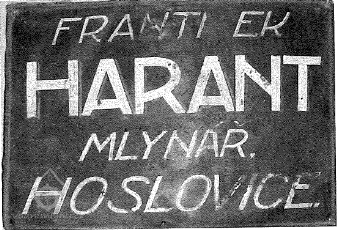 FRANTI EK
HARANT
MLYNÁŘ.
HOSLOVICE.